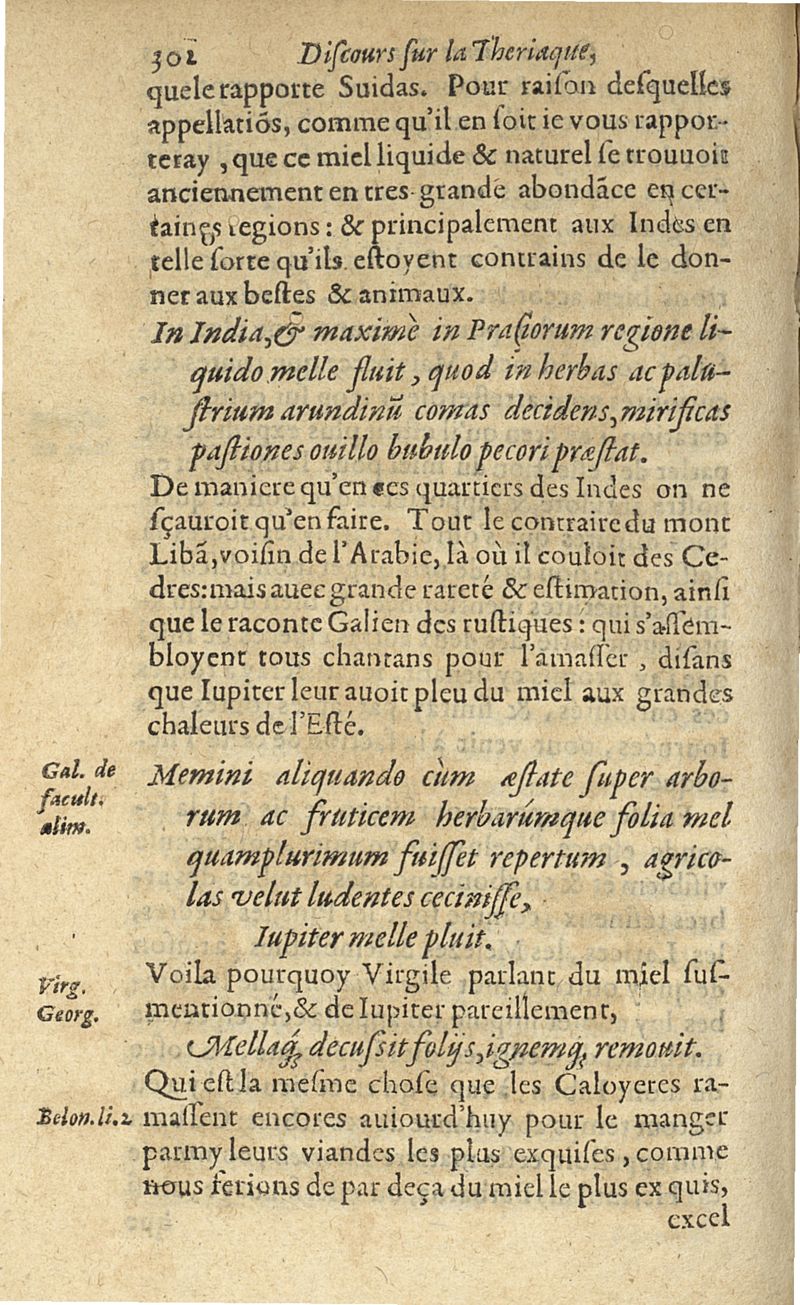 302 Discours sur la Theriaque,
quele rapporte Suidas. Pour raiſon deſquelles
appellatiõs, comme qu'il en ſoit ie vous rappor-
teray, que ce miel liquide & naturel ſe trouuoit
anciennement en tres-grande abondãce en cer-
taines regions: & principalement aux Indes en
telle ſorte qu'ils eſtoyent contrains de le don-
ner aux beſtes & animaux.
In India, & maximè in Praſiorum regione li-
quido melle fluit, quod in herbas ac palu-
ſtrium arundinũ comas decidens, mirificas
paſtiones ouillo bubulo pecori præſtat.
De maniere qu'en ces quartiers des Indes on ne
ſçauroit qu'en faire. Tout le contraire du mont
Libã, voiſin de l'Arabie, là où il couloit des Ce-
dres: mais auec grande rareté & eſtimation, ainſi
que le raconte Galien des ruſtiques: qui s'aſſem-
bloyent tous chantans pour l'amaſſer, diſans
que Iupiter leur auoit pleu du miel aux grandes
chaleurs de l'Eſté.
Gal. de
facult.
alim.
Memini aliquando cùm æſtate ſuper arbo-
rum ac fruticem herbarúmque folia mel
quamplurimum fuiſſet repertum, agrico-
las velut ludentes ceciniſſe,
Iupiter melle pluit.
Virg.
Georg.
Voila pourquoy Virgile parlant du miel ſuſ-
mentionné, & de Iupiter pareillement,
Mellaq́; decuſsit folijs, ignemq́; remouit.
Qui eſt la meſme choſe que les Caloyeres ra-
Belon. li. 2
maſſent encores auiourd'huy pour le manger
parmy leurs viandes les plus exquiſes, comme
nous ferions de par deça du miel le plus exquis,
excel